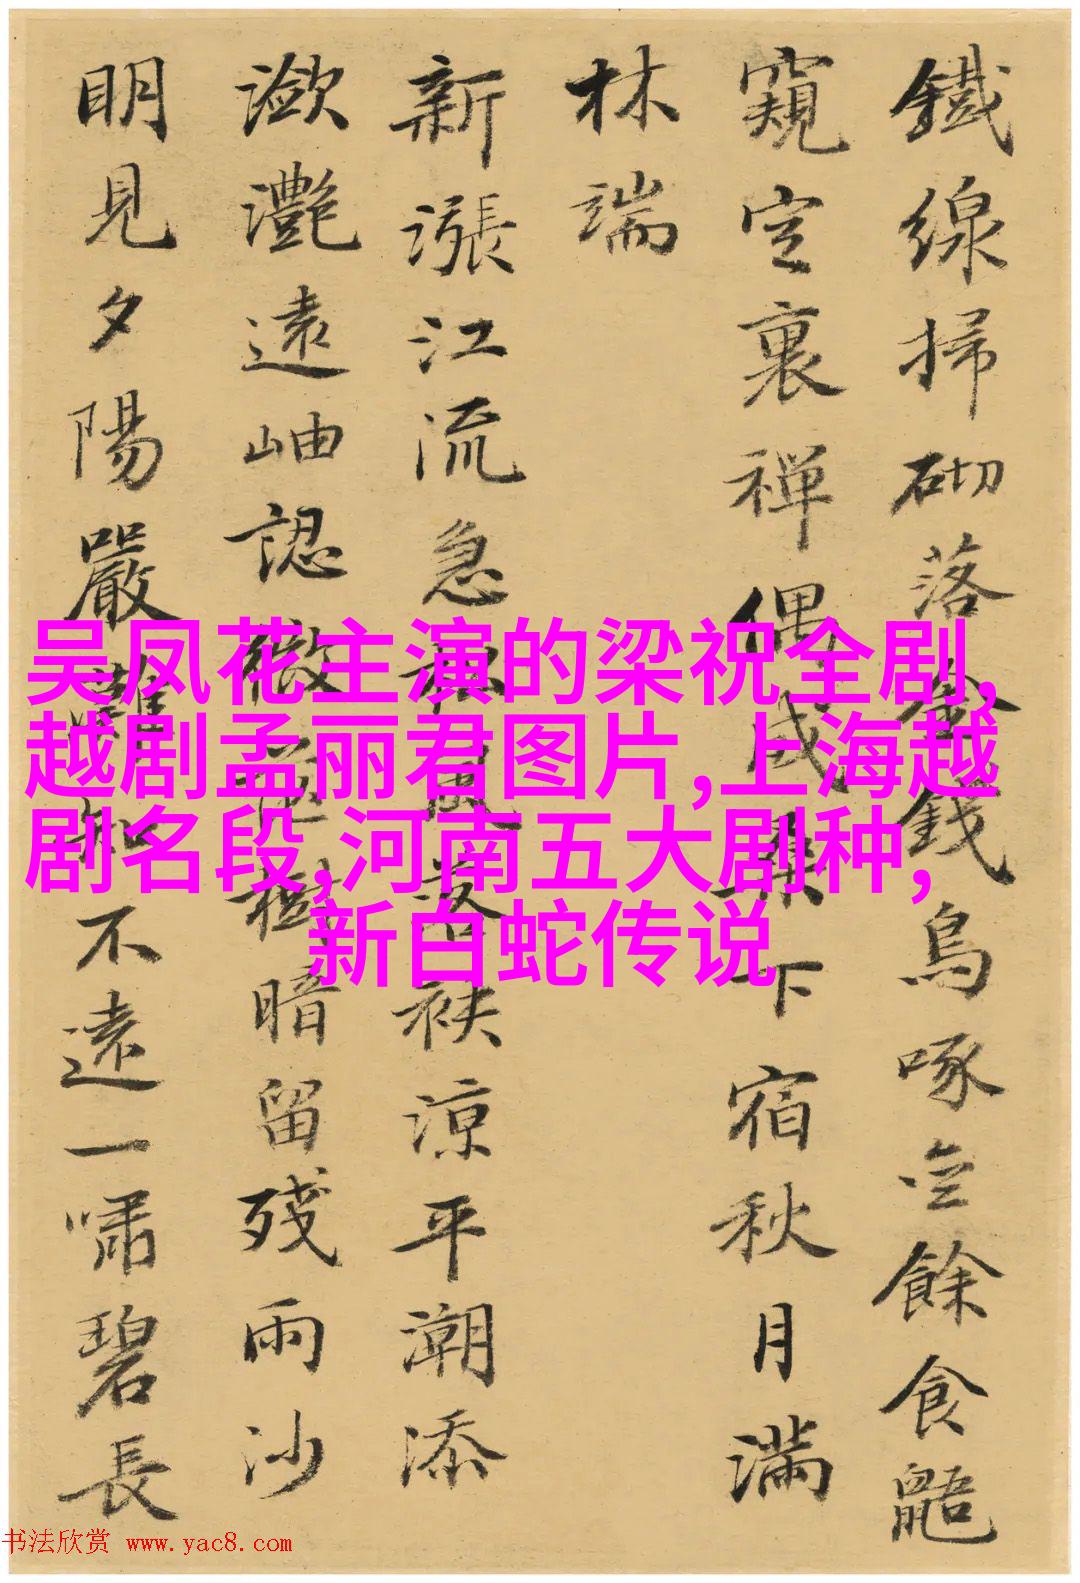 鐵線掃砌落金錢烏啄空餘食鼯
窺定裏禪偶成集下宿秋月滿
林端
新漲江流急風落袂涼平潮添
瀲灩遠岫認微樹暗留殘雨沙
明見夕陽嚴不遠一嘯碧長
吴凤花主演的梁祝全剧,
越剧孟丽君图片,上海越
剧名段,河南五大剧种,
新白蛇传说
书法欣赏 www.yac8.com